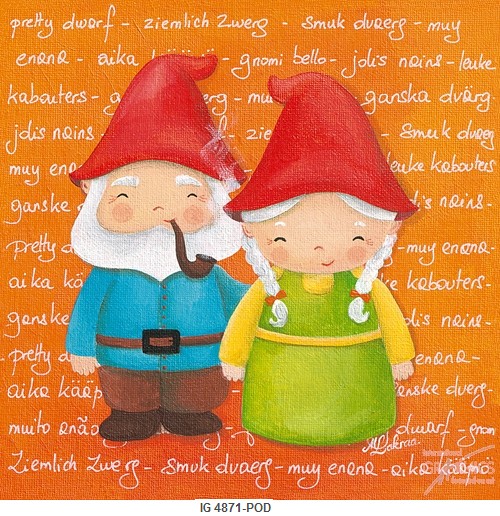 pretty dwarf - ziemlich zwerg - smuk dvaerg - muy
enana - aika kääpiö - gnomi bello - jolis nains - leuke
kabouters - ganska dvärg
jolis nains - zie - Smuk dvaerg
muy ena leuke kabouters
ganske d lis nains -
Pretty - muy enana -
aika kä e kabouters -
ganske olis nains -
- pretty d enana -
aika kääp enske dverg -
muito enão dwarf - gnom
Ziemlich Zwerg - Smuk dvaerg - muy enana - aika kääpiö
IG 4871-POD